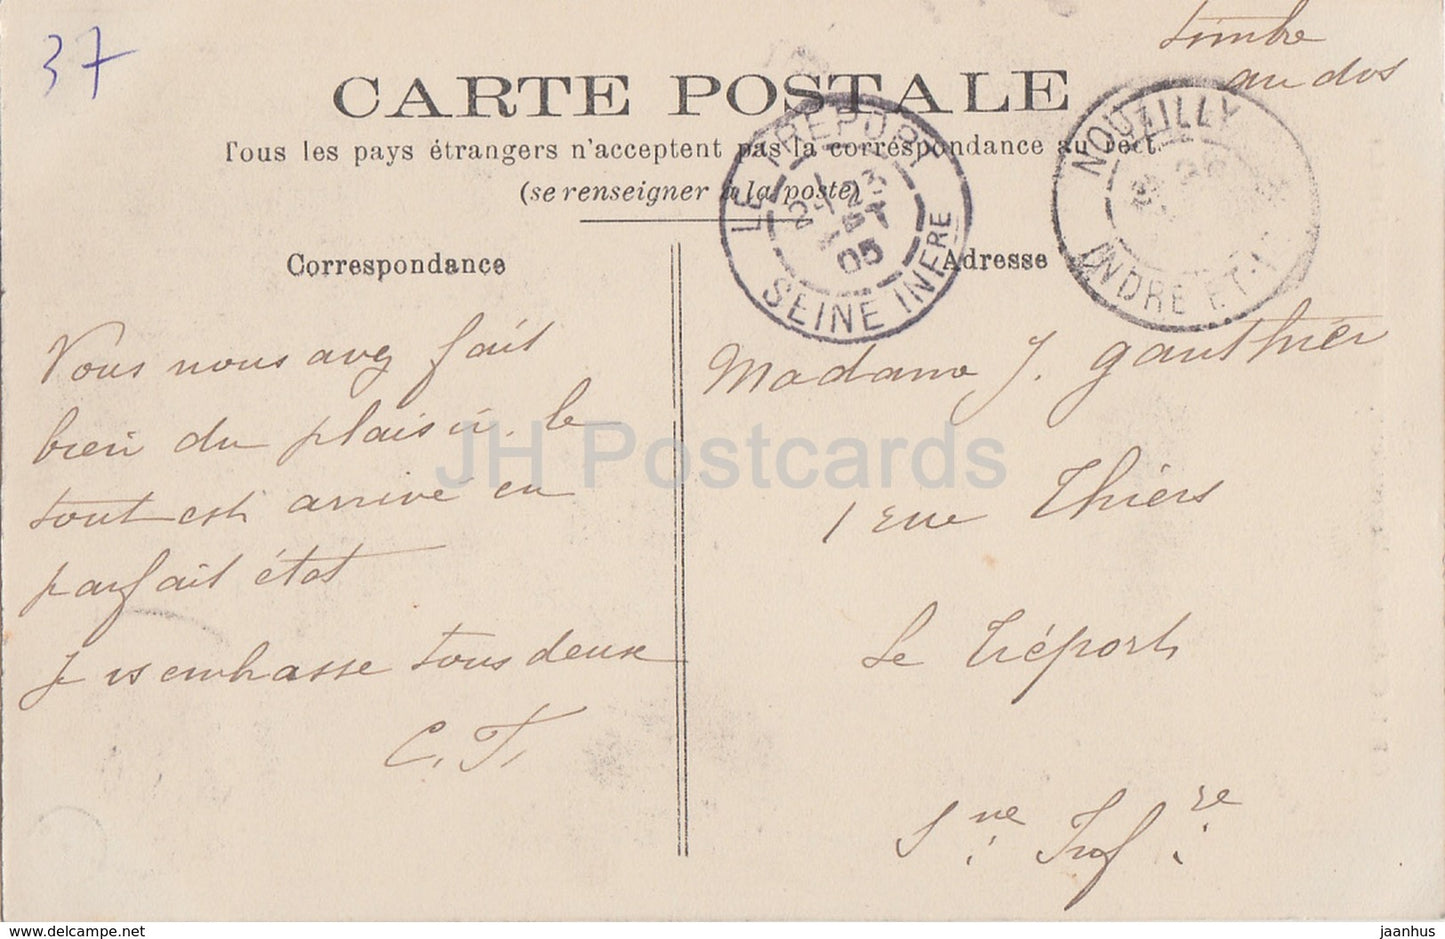 37
timbre
au dos
CARTE POSTALE
Tous les pays étrangers n'acceptent pas la correspondance au rect.
(se renseigner à la poste)
LE TREPORT
23
05
SEINE INFRE
NOUZILLY
INDRE ET-L
Correspondance
Adresse
Vous nous avez fait
bien du plaisir. le
tout est arrivé en
parfait état
Je vs embrasse tous deux
C. T.
Madame J. Gauthier
1 rue Thiers
Le Tréport
Sne Infre
JH Postcards
www.delcampe.net
jaanhus